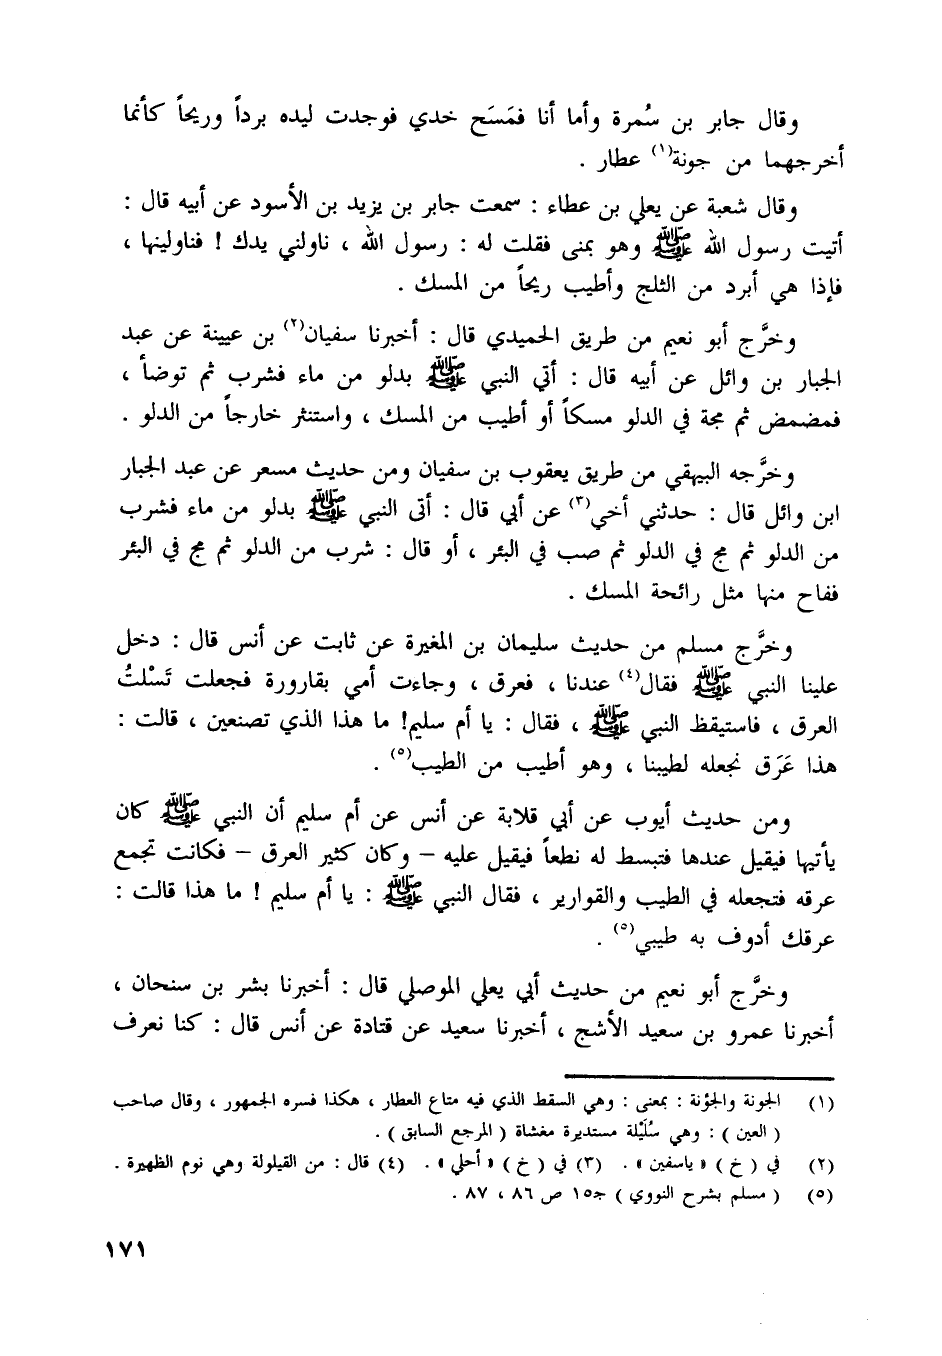 وقال جابر بن سُمرة وأما أنا فمَسَح خدي فوجدت ليده برداً وريحاً كأنما
أخرجهما من جونة(١) عطار .
وقال شعبة عن يعلي بن عطاء : سمعت جابر بن يزيد بن الأسود عن أبيه قال :
أتيت رسول الله ﷺ وهو بمنى فقلت له : رسول الله ، ناولني يدك ! فناولينها ،
فإذا هي أبرد من الثلج وأطيب ريحاً من المسك .
وخرَّج أبو نعيم من طريق الحميدي قال : أخبرنا سفيان(٢) بن عيينة عن عبد
الجبار بن وائل عن أبيه قال : أتي النبي ﷺ بدلو من ماء فشرب ثم توضأ ،
فمضمض ثم مجة في الدلو مسكاً أو أطيب من المسك ، واستنثر خارجاً من الدلو .
وخرَّجه البيهقي من طريق يعقوب بن سفيان ومن حديث مسعر عن عبد الجبار
ابن وائل قال : حدثني أخي(٣) عن أبي قال : أتى النبي ﷺ بدلو من ماء فشرب
من الدلو ثم مج في الدلو ثم صب في البئر ، أو قال : شرب من الدلو ثم مج في البئر
ففاح منها مثل رائحة المسك .
وخرَّج مسلم من حديث سليمان بن المغيرة عن ثابت عن أنس قال : دخل
علينا النبي ﷺ فقال(٤) عندنا ، فعرق ، وجاءت أمي بقارورة فجعلت تَسْلتُ
العرق ، فاستيقظ النبي ﷺ ، فقال : يا أم سليم! ما هذا الذي تصنعين ، قالت :
هذا عَرَق نجعله لطيبنا ، وهو أطيب من الطيب(٥) .
ومن حديث أيوب عن أبي قلابة عن أنس عن أم سليم أن النبي ﷺ كان
يأتيها فيقيل عندها فتبسط له نطعاً فيقيل عليه – وكان كثير العرق – فكانت تجمع
عرقه فتجعله في الطيب والقوارير ، فقال النبي ﷺ : يا أم سليم ! ما هذا قالت :
عرقك أدوف به طيبي(٥) .
وخرَّج أبو نعيم من حديث أبي يعلي الموصلي قال : أخبرنا بشر بن سنحان ،
أخبرنا عمرو بن سعيد الأشج ، أخبرنا سعيد عن قتادة عن أنس قال : كنا نعرف
(١) الجونة والجؤنة : بمعنى : وهي السقط الذي فيه متاع العطار ، هكذا فسره الجمهور ، وقال صاحب
( العين ) : وهي سُلَيْلة مستديرة مغشاة ( المرجع السابق ) .
(٢) في ( خ ) « ياسفين » . (٣) في ( خ ) « أحلي » . (٤) قال : من القيلولة وهي نوم الظهيرة .
(٥) ( مسلم بشرح النووي ) جـ١٥ ص ٨٦ ، ٨٧ .
١٧١